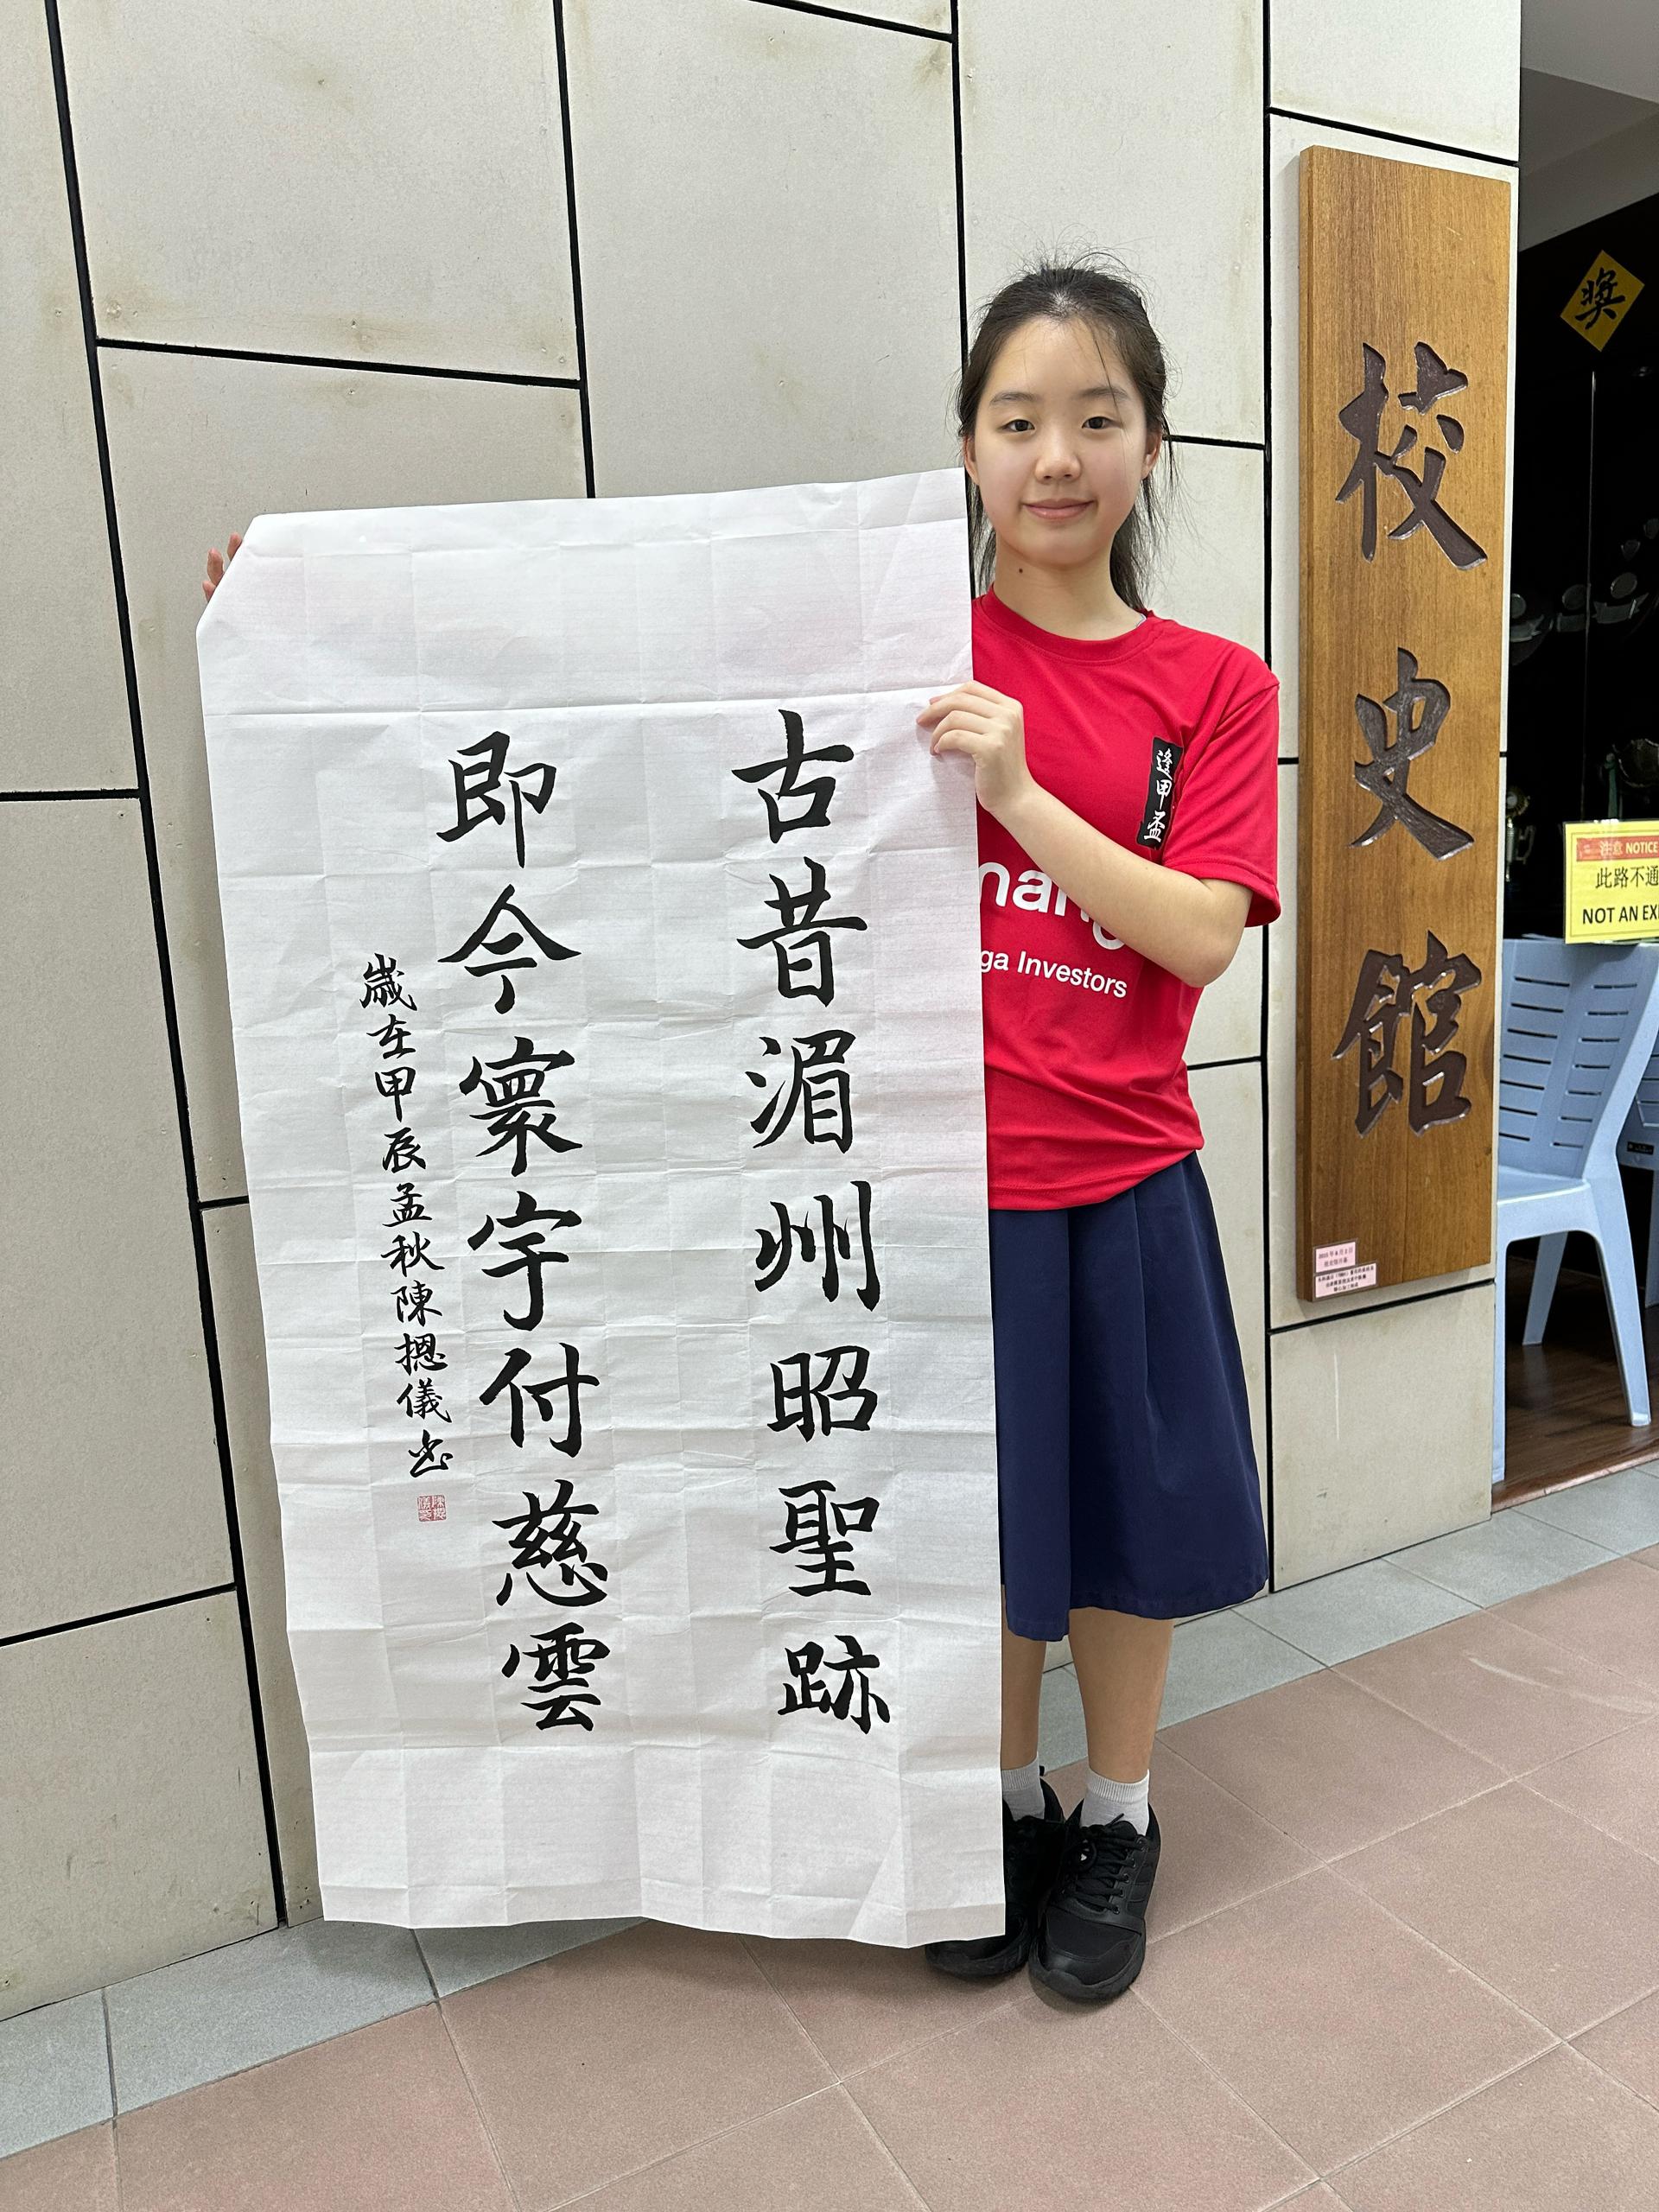 古昔湄州昭聖跡
即今寰宇付慈雲
歲在甲辰孟秋陳摁儀書
逢甲盃
ga Investors
校史館
獎
注意 NOTICE
此路不通
NOT AN EX